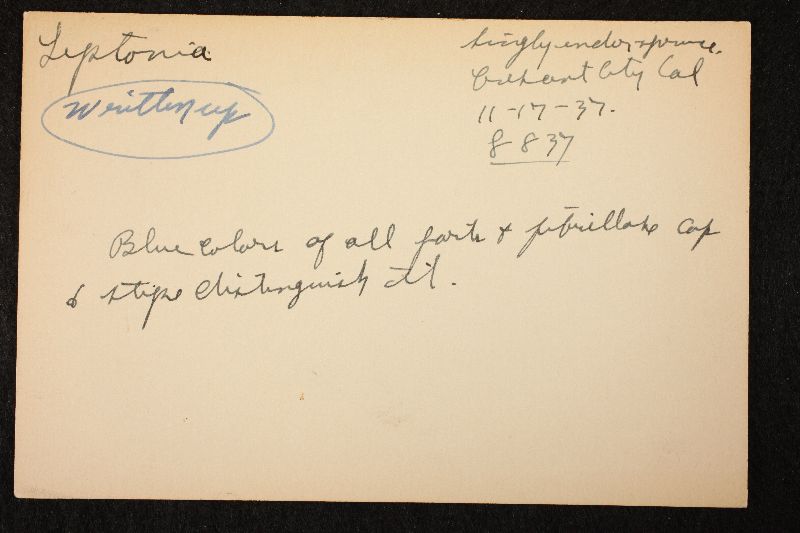 Leptonia
Written up
Singly under spruce.
Crescent City Cal
11-17-37.
8837
Blue colors of all parts & fibrillose cap
& stipe distinguish it.